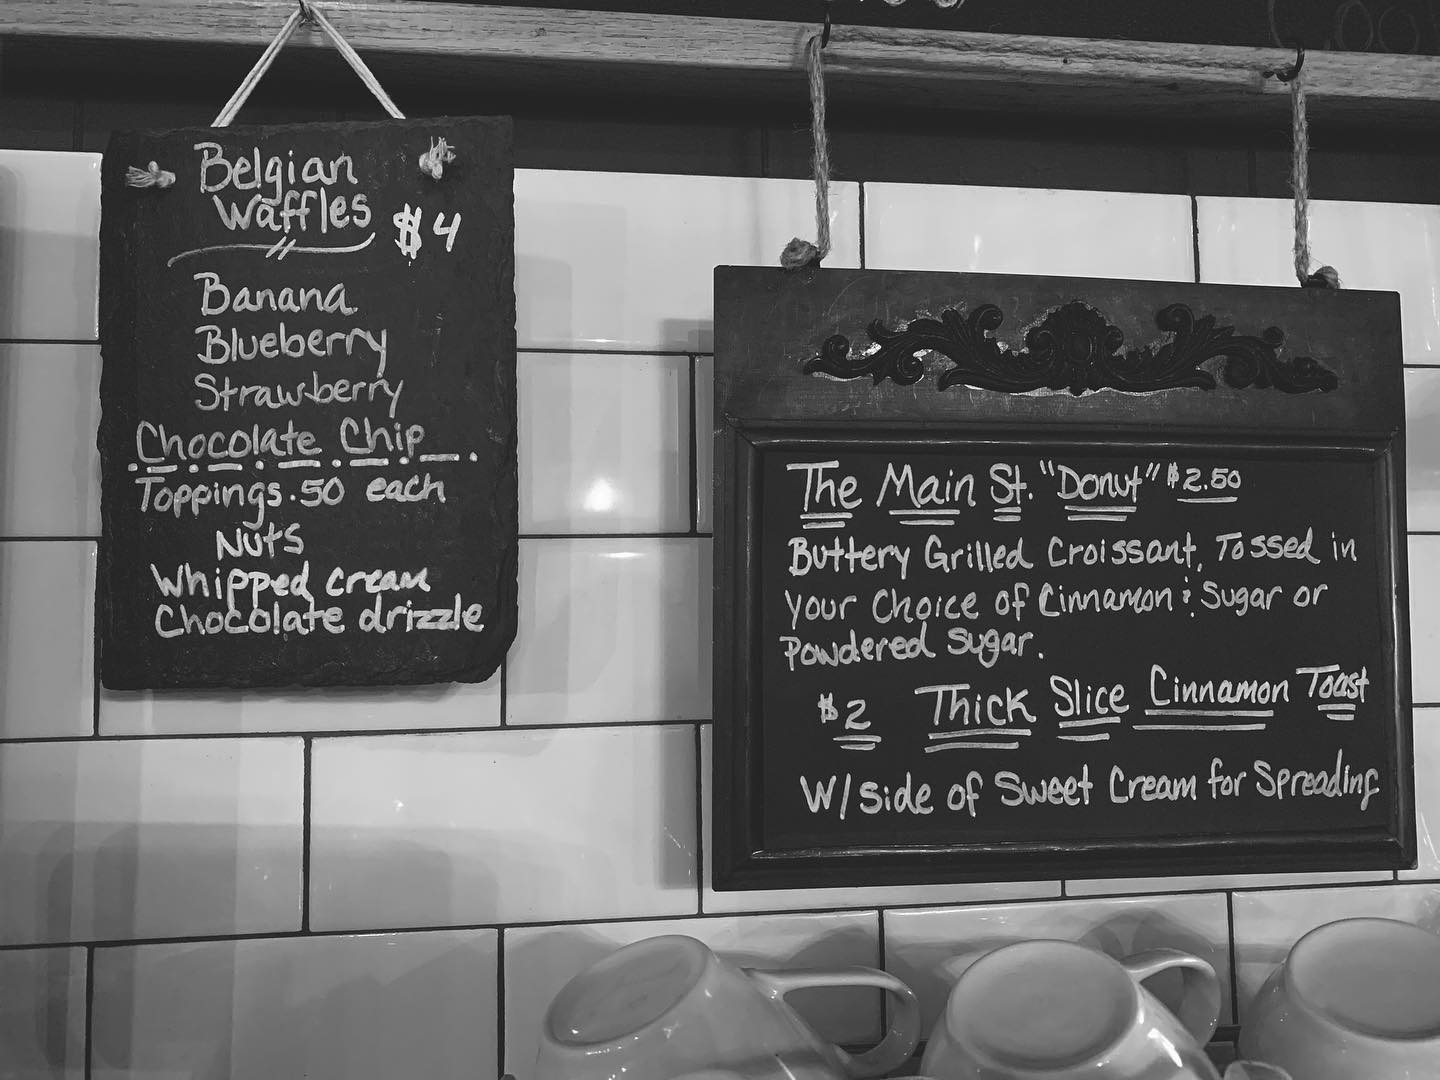 Belgian
Waffles
$4
Banana
Blueberry
Strawberry
Chocolate Chip
Toppings .50 each
Nuts
Whipped cream
Chocolate drizzle
The Main St. "Donut" $2.50
Buttery Grilled Croissant, Tossed in
your Choice of Cinnamon & Sugar or
Powdered Sugar.
$2 Thick Slice Cinnamon Toast
W/side of Sweet Cream for Spreading